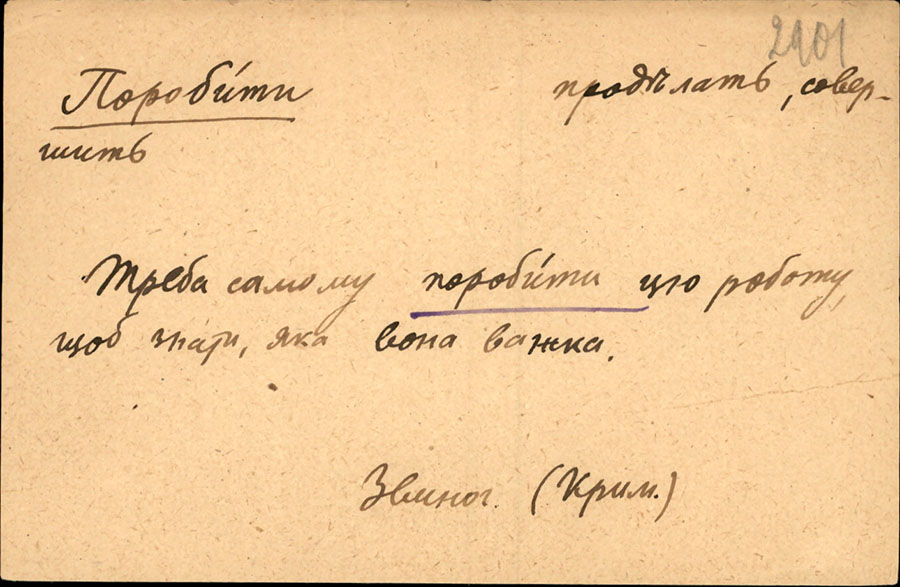 2401
Пороби́ти продѣлать, совер-
шить
Треба самому пороби́ти цю роботу,
щоб знати, яка вона важка.
Звиног. (Крим.)